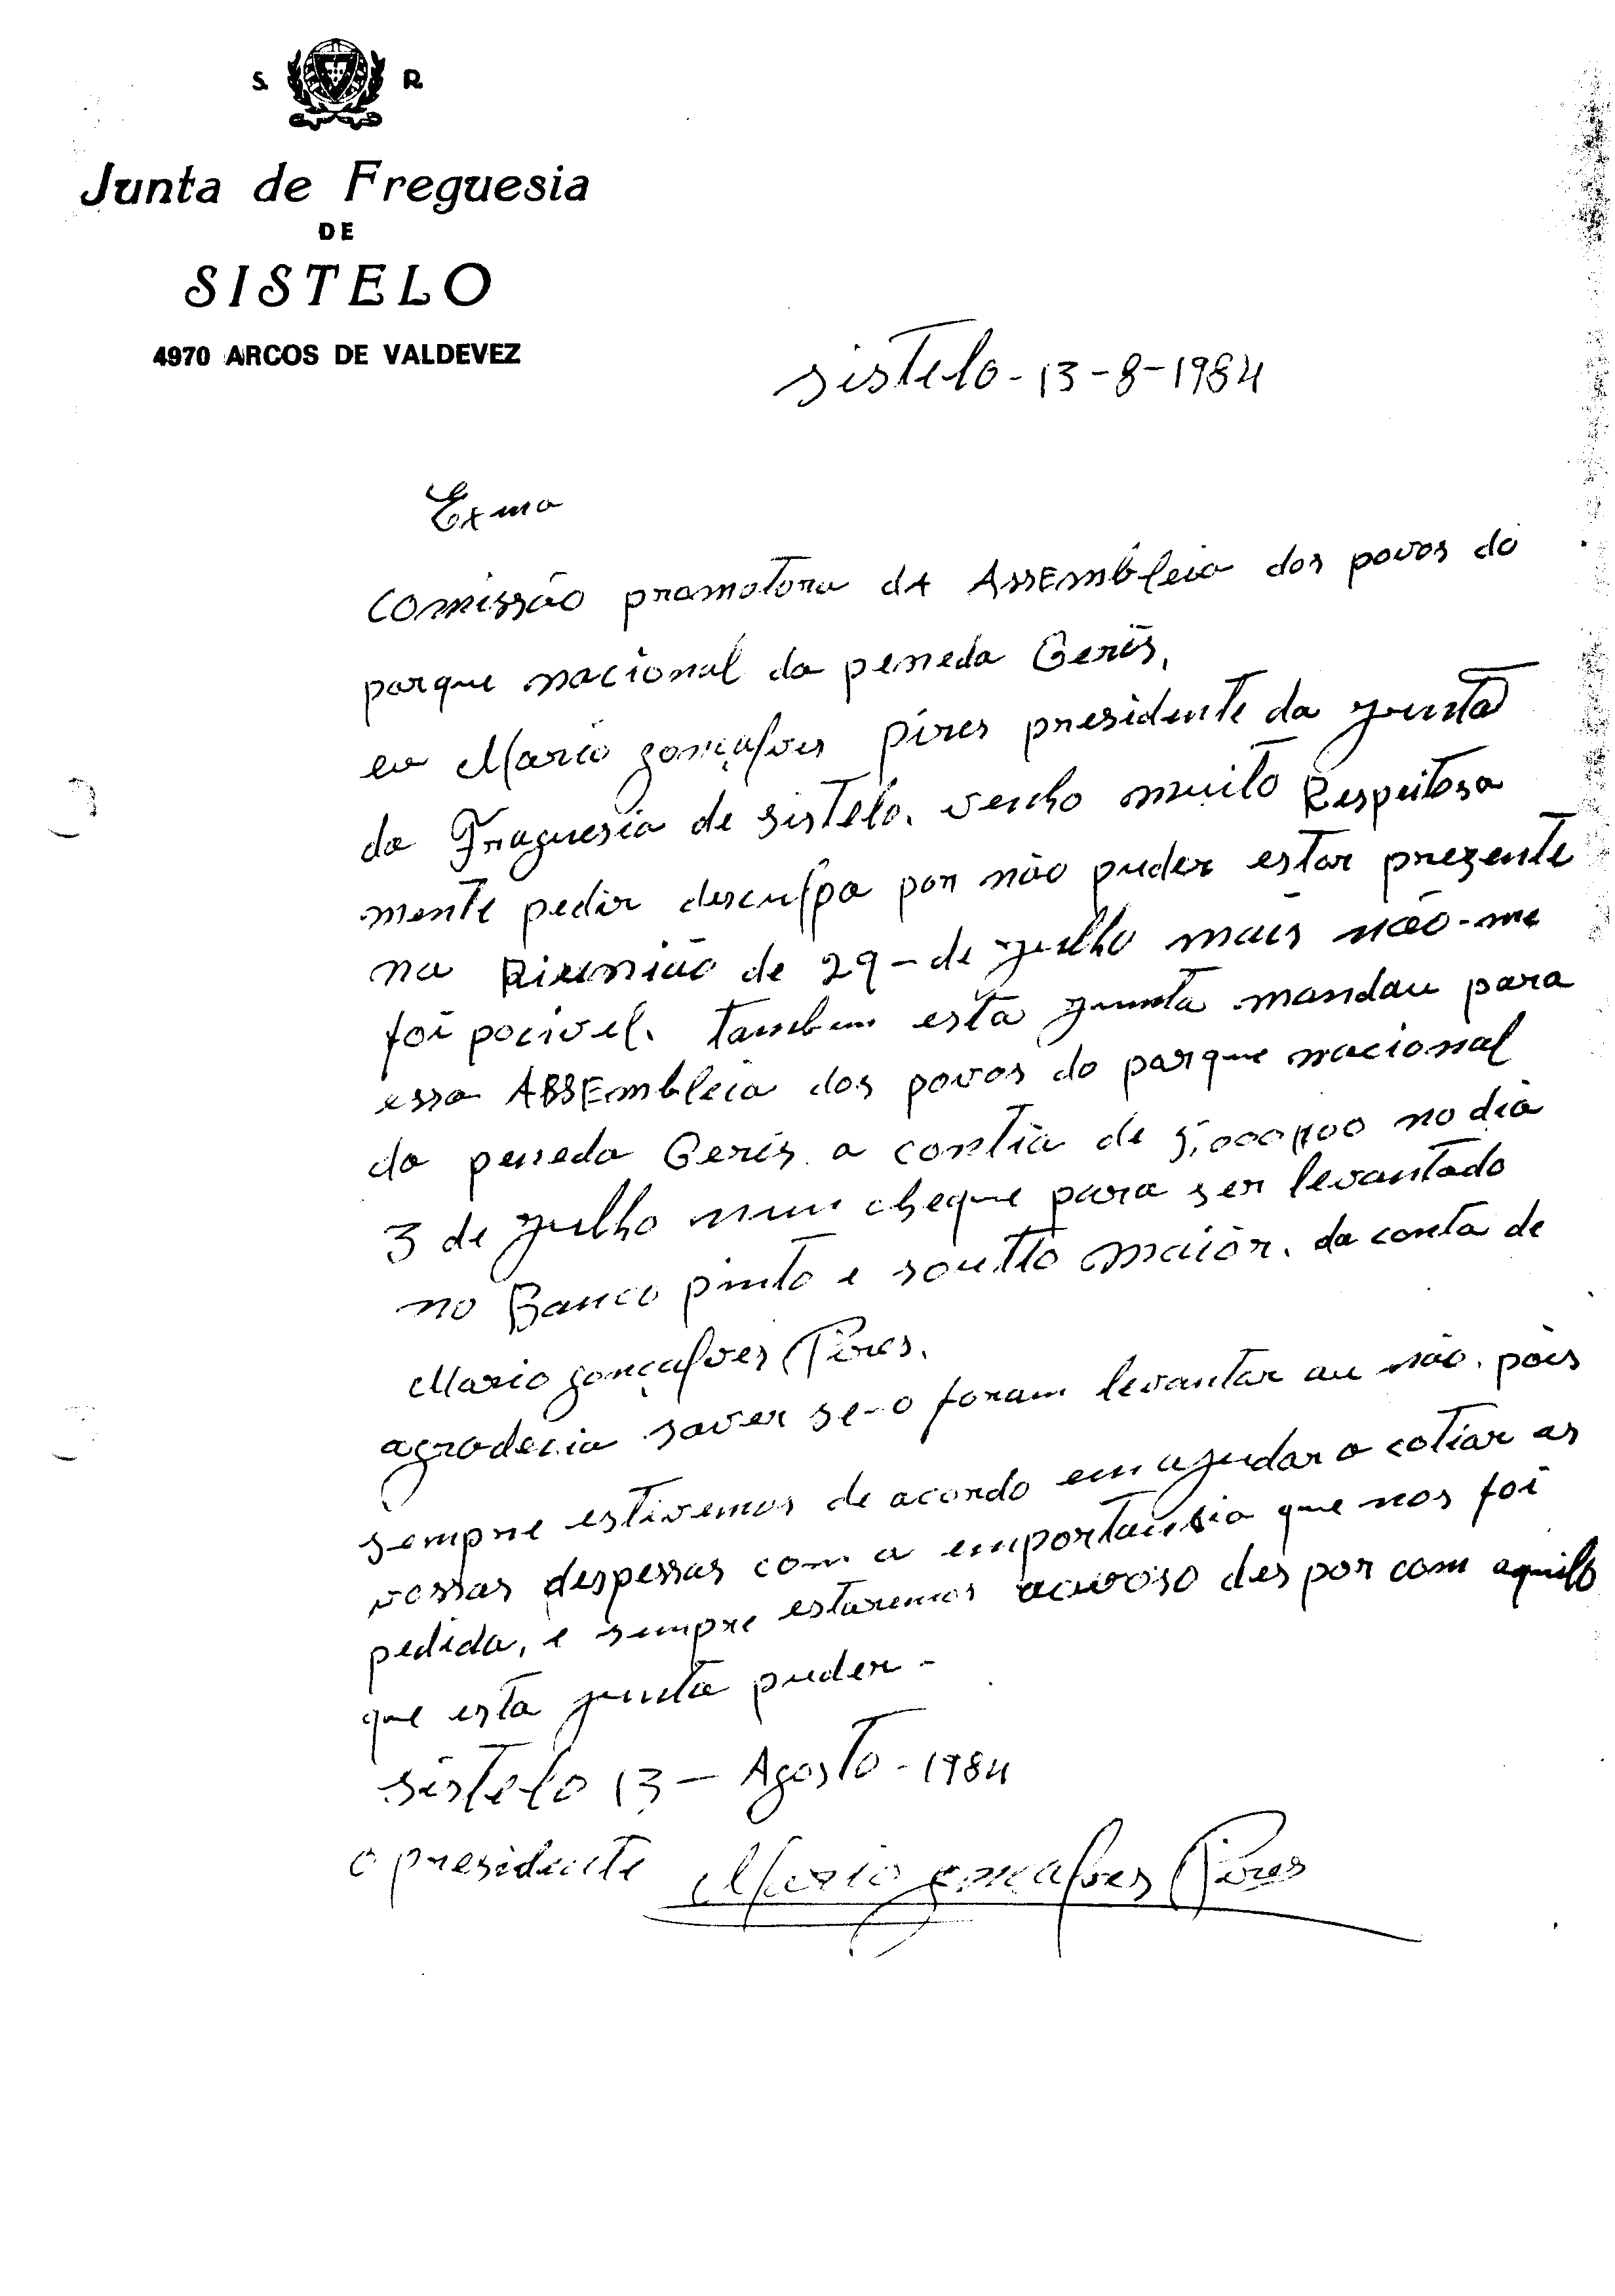 S. R.
Junta de Freguesia
DE
SISTELO
4970 ARCOS DE VALDEVEZ
sistelo - 13-8-1984
Exma
Comissão pramotora dA ASSEmbleia dos povos do
parque nacional da peneda Gerês,
eu Mario gonçalves pires presidente da junta
da Fraguesia de sistelo. venho muito Respeitosa
mente pedir desculpa por não puder estar prezente
na Riunião de 29-de julho mais não-me
foi pocivel. tambem esta junta mandau para
essa ASSEmbleia dos povos do parque nacional
da peneda Gerês a contia de 5,000$00 no dia
3 de julho num cheque para ser levantado
no Banco pinto e soutto maior. da conta de
Mario gonçalves Pires.
agradecia saver se-o foram levantar au não. pois
sempre estivemos de acordo em ajudar a cotiar as
vossas despessas com a emportansia que nos foi
pedida, e sempre estaremos ao voso des por com aquilo
que esta junta puder -
sistelo 13 - Agosto - 1984
o presidente Mario gonçalves Pires